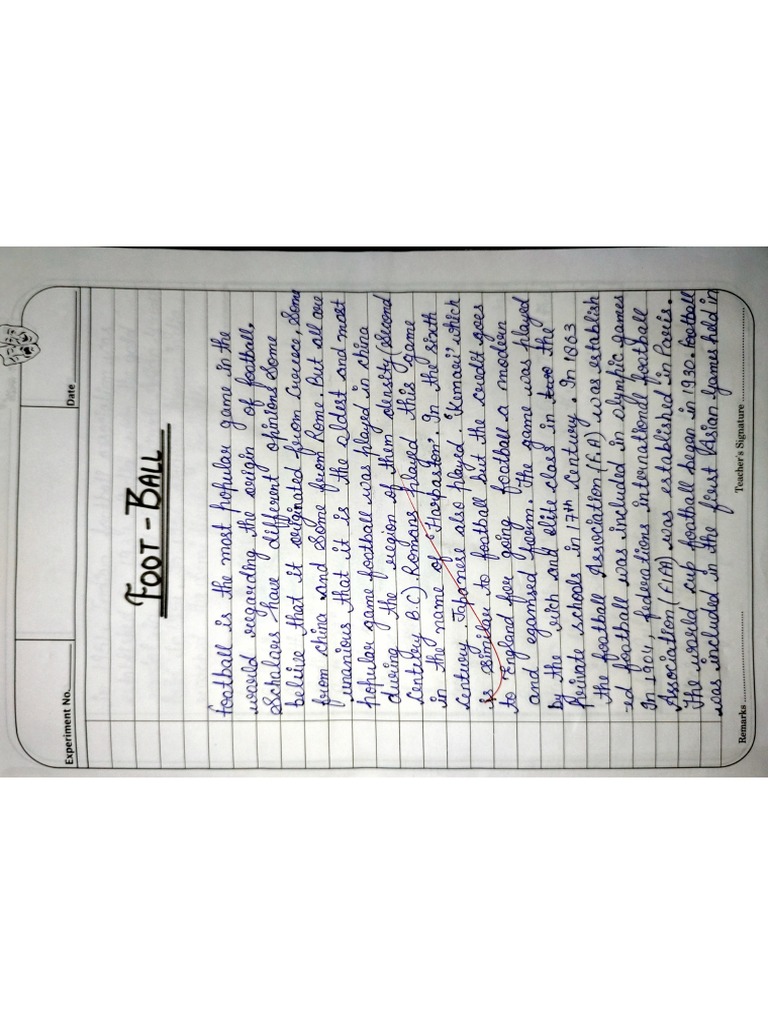 Experiment No.
Date
FOOT-BALL
Football is the most popular game in the
world regarding the origin of football,
Scholars have different opinions Some
belive that it originated from Greece, Some
from China and some from Rome. But all are
unanious that it is the oldest and most
popular game football was played in china
during the region of them density (Second
Centuby B.C) Romans played this game
in the name of "Harpaston". In the sixth
century. Japanese also played "Kemari" which
is similar to football but the credit goes
to England for going football a modern
and egamsed form. The game was played
by the rich and elite class in the
Private schools in 17th century. In 1863
the football Association (F.A) was establish
-ed football was included in olympic games
In 1904, federations internationde football
Association (FIA) was established in Paris.
The world cup football began in 1930. Football
was included in the first Asian games held in
Remarks
Teacher's Signature